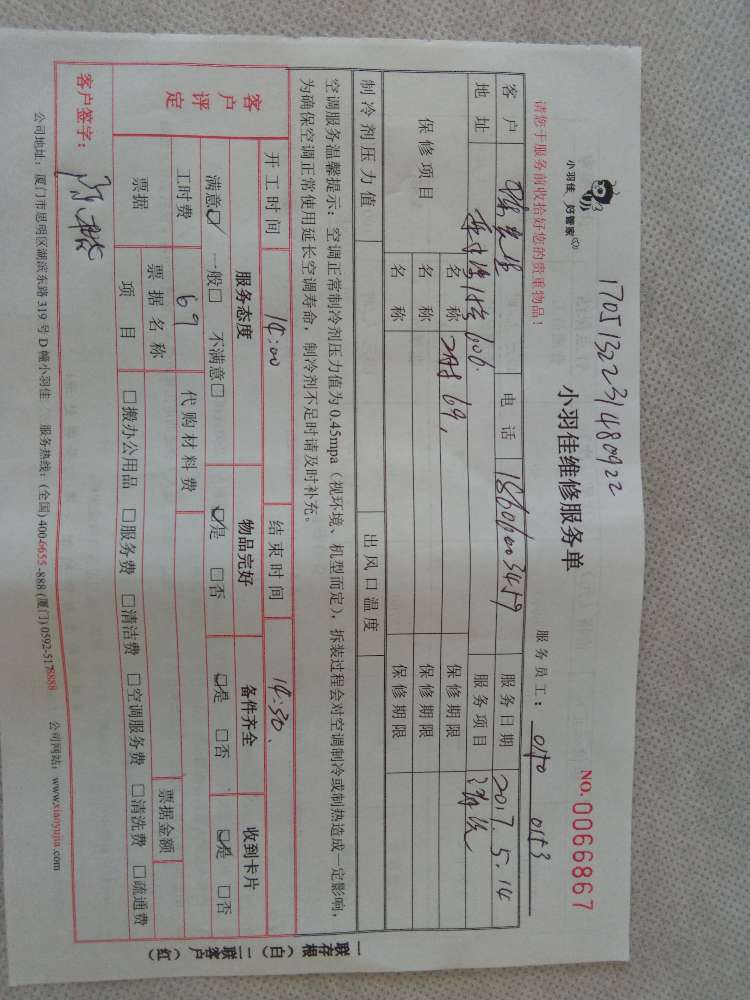 1705132231480922
小羽佳 好管家
小羽佳维修服务单
NO.0066867
请您于服务前收拾好您的贵重物品！
服务员工： 0170 0153
客户 陈先生 电话 18606003459 服务日期 2017.5.14
地址 606 服务项目 清洗
保修项目 名称 69, 保修期限
名称 保修期限
名称 保修期限
制冷剂压力值 出风口温度
空调服务温馨提示：空调正常制冷剂压力值为0.45mpa（视环境、机型而定），拆装过程会对空调制冷或制热造成一定影响，
为确保空调正常使用延长空调寿命，制冷剂不足时请及时补充。
开工时间 14:00 结束时间 14:30
客户评定 服务态度 物品完好 备件齐全 收到卡片
满意☑ 一般□ 不满意□ ☑是 □否 ☑是 □否 ☑是 □否
工时费 69 代购材料费
票据 票据名称 票据金额
项目 □搬办公用品 □服务费 □清洁费 □空调服务费 □清洗费 □疏通费
客户签字：
公司地址：厦门市思明区湖滨东路319号D幢小羽佳 服务热线：(全国)400-6655-888 (厦门)0592-5178888 公司网站：www.xiaoyujia.com
一联存根（白） 二联客户（红）